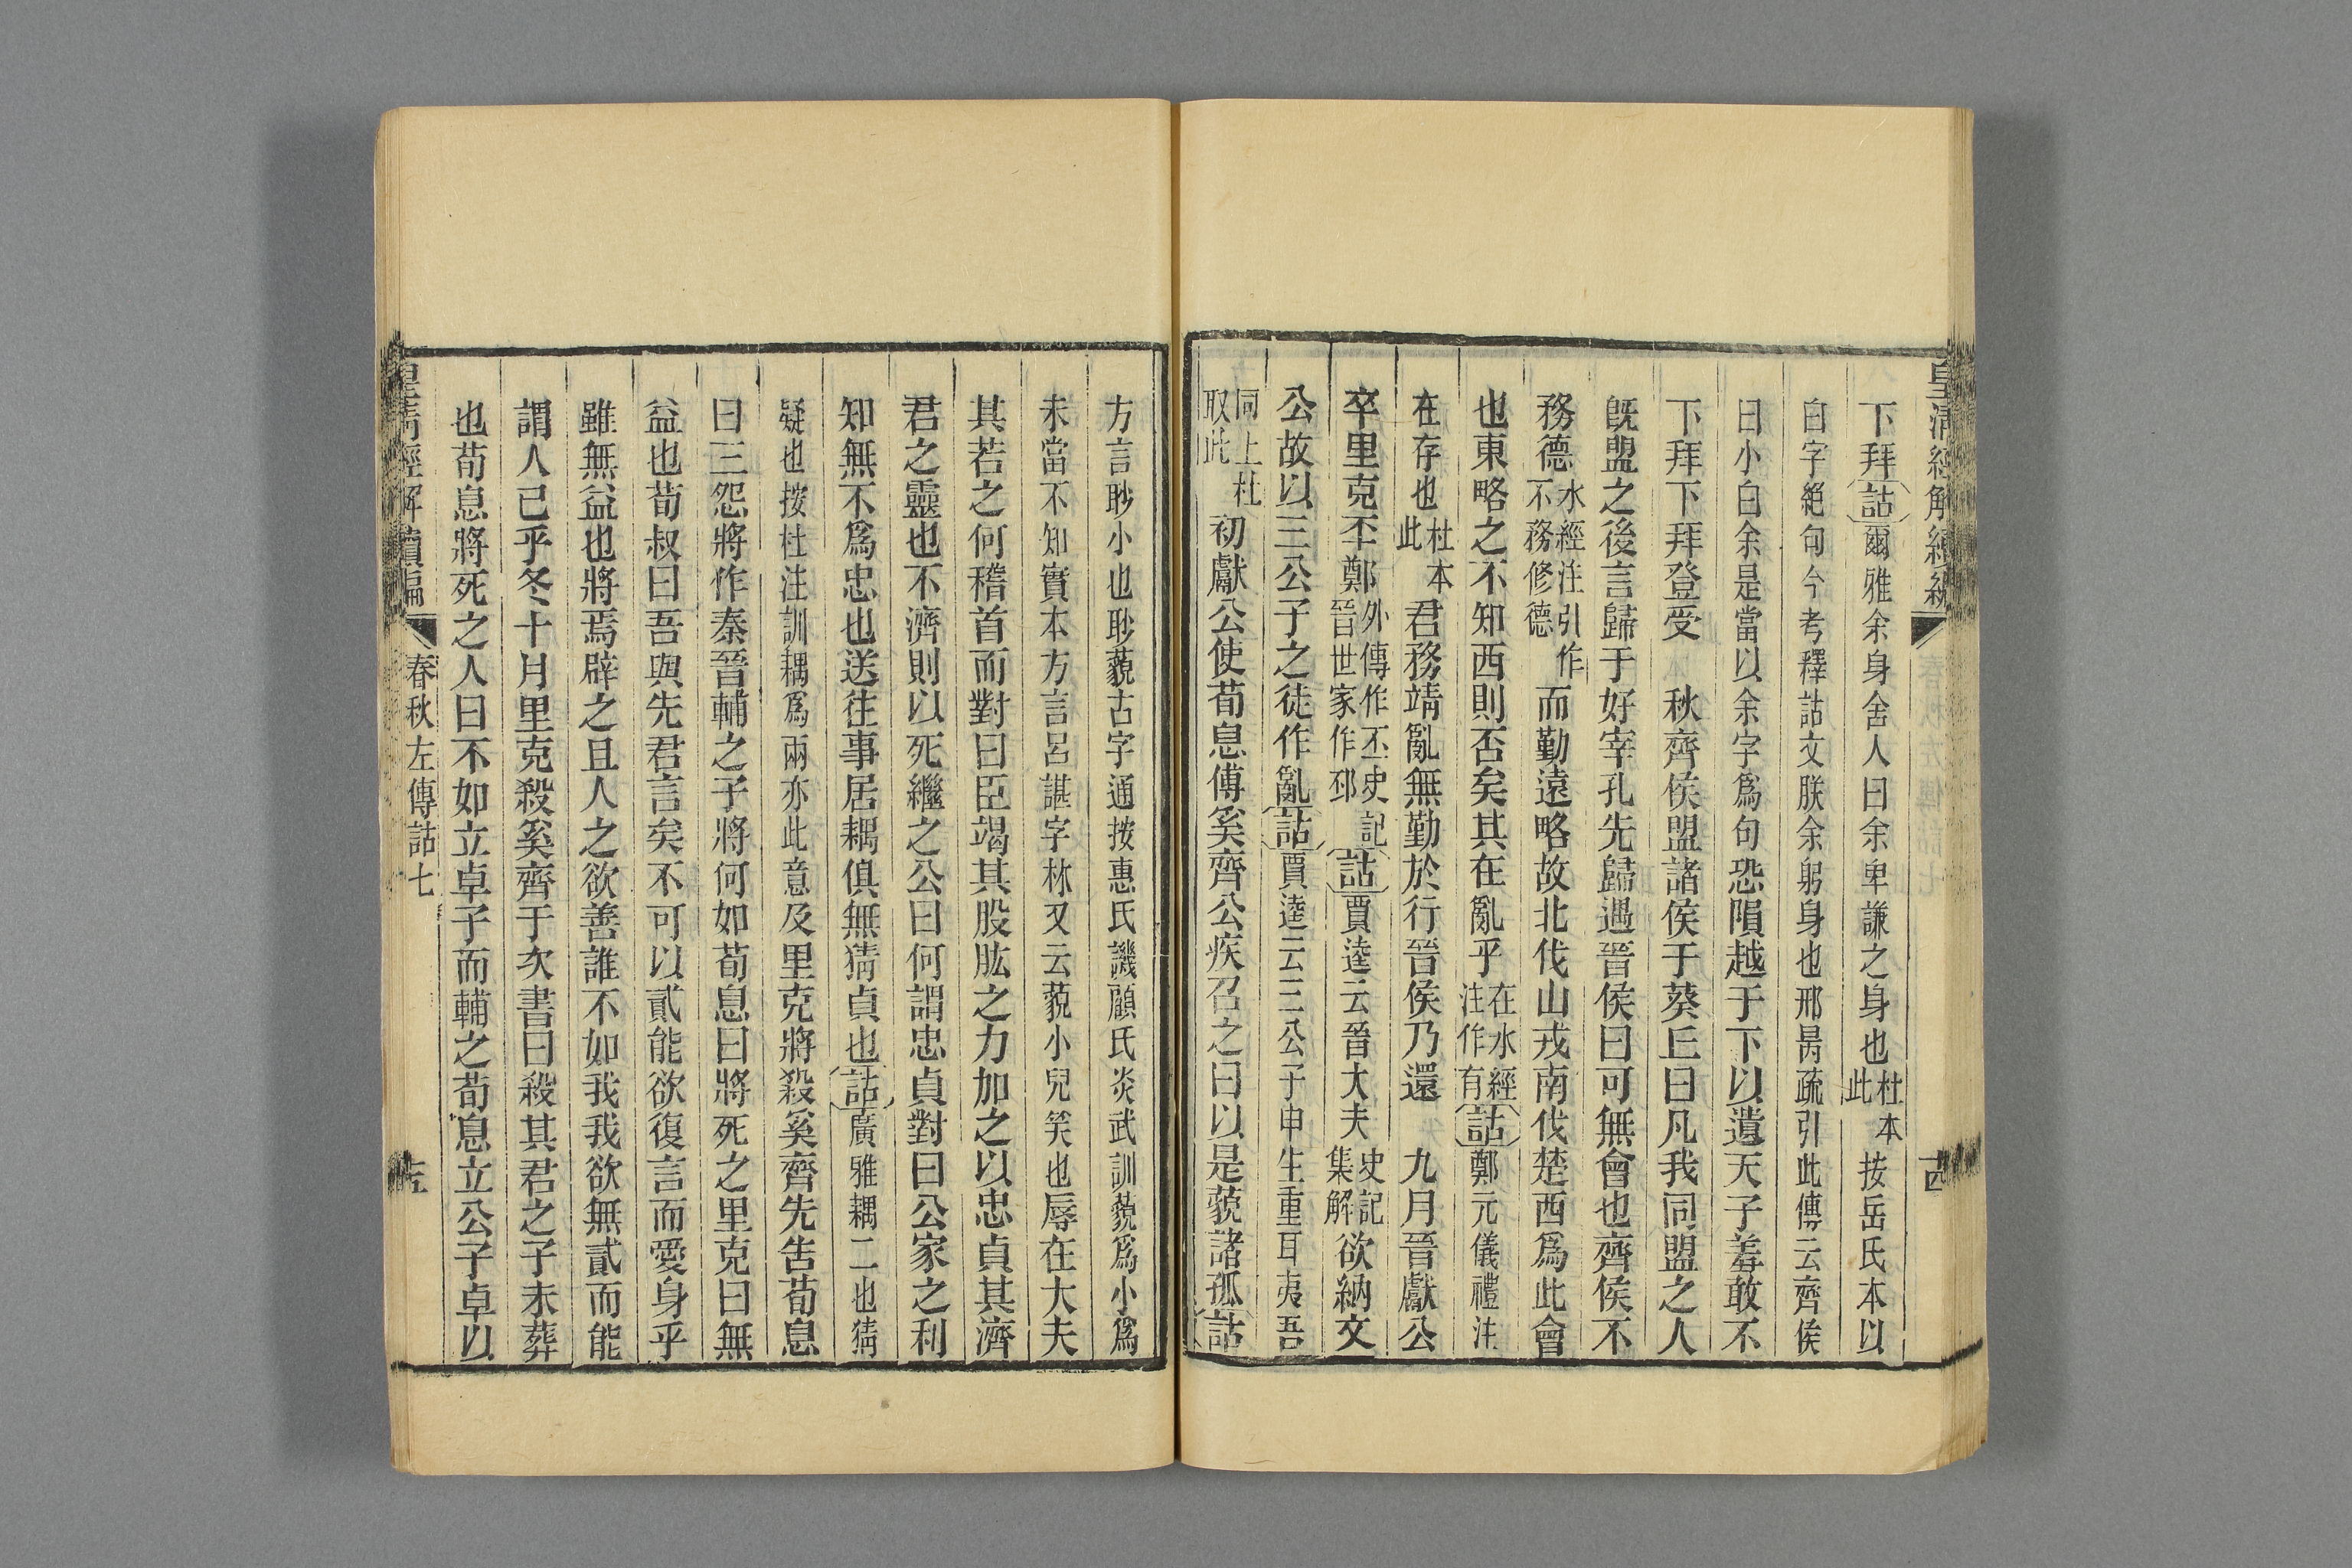 皇清經解續編
十四
下拜詁爾雅余身舍人曰余卑謙之身也杜本此按岳氏本以
白字絕句今考釋詁文朕余躬身也邢昺疏引此傳云齊侯
曰小白余是當以余字爲句恐隕越于下以遺天子羞敢不
下拜下拜登受 秋齊侯盟諸侯于葵丘曰凡我同盟之人
旣盟之後言歸于好宰孔先歸遇晉侯曰可無會也齊侯不
務德水經注引作不務修德而勤遠略故北伐山戎南伐楚西爲此會
也東略之不知西則否矣其在亂乎在水經注作有詁鄭元儀禮注
在存也杜本此君務靖亂無勤於行晉侯乃還 九月晉獻公
卒里克丕鄭外傳作丕史記晉世家作邳詁賈逵云晉大夫史記集解欲納文
公故以三公子之徒作亂詁賈逵云三公子申生重耳夷吾
同上杜取此初獻公使荀息傅奚齊公疾召之曰以是藐諸孤詁
方言眇小也眇藐古字通按惠氏譏顧氏炎武訓藐爲小爲
未當不知實本方言呂諶字林又云藐小兒笑也辱在大夫
其若之何稽首而對曰臣竭其股肱之力加之以忠貞其濟
君之靈也不濟則以死繼之公曰何謂忠貞對曰公家之利
知無不爲忠也送往事居耦俱無猜貞也詁廣雅耦二也猜
疑也按杜注訓耦爲兩亦此意及里克將殺奚齊先告荀息
曰三怨將作秦晉輔之子將何如荀息曰將死之里克曰無
益也荀叔曰吾與先君言矣不可以貳能欲復言而愛身乎
雖無益也將焉辟之且人之欲善誰不如我我欲無貳而能
謂人已乎冬十月里克殺奚齊于次書曰殺其君之子未葬
也荀息將死之人曰不如立卓子而輔之荀息立公子卓以
皇淸經解續編
春秋左傳詁七
十五